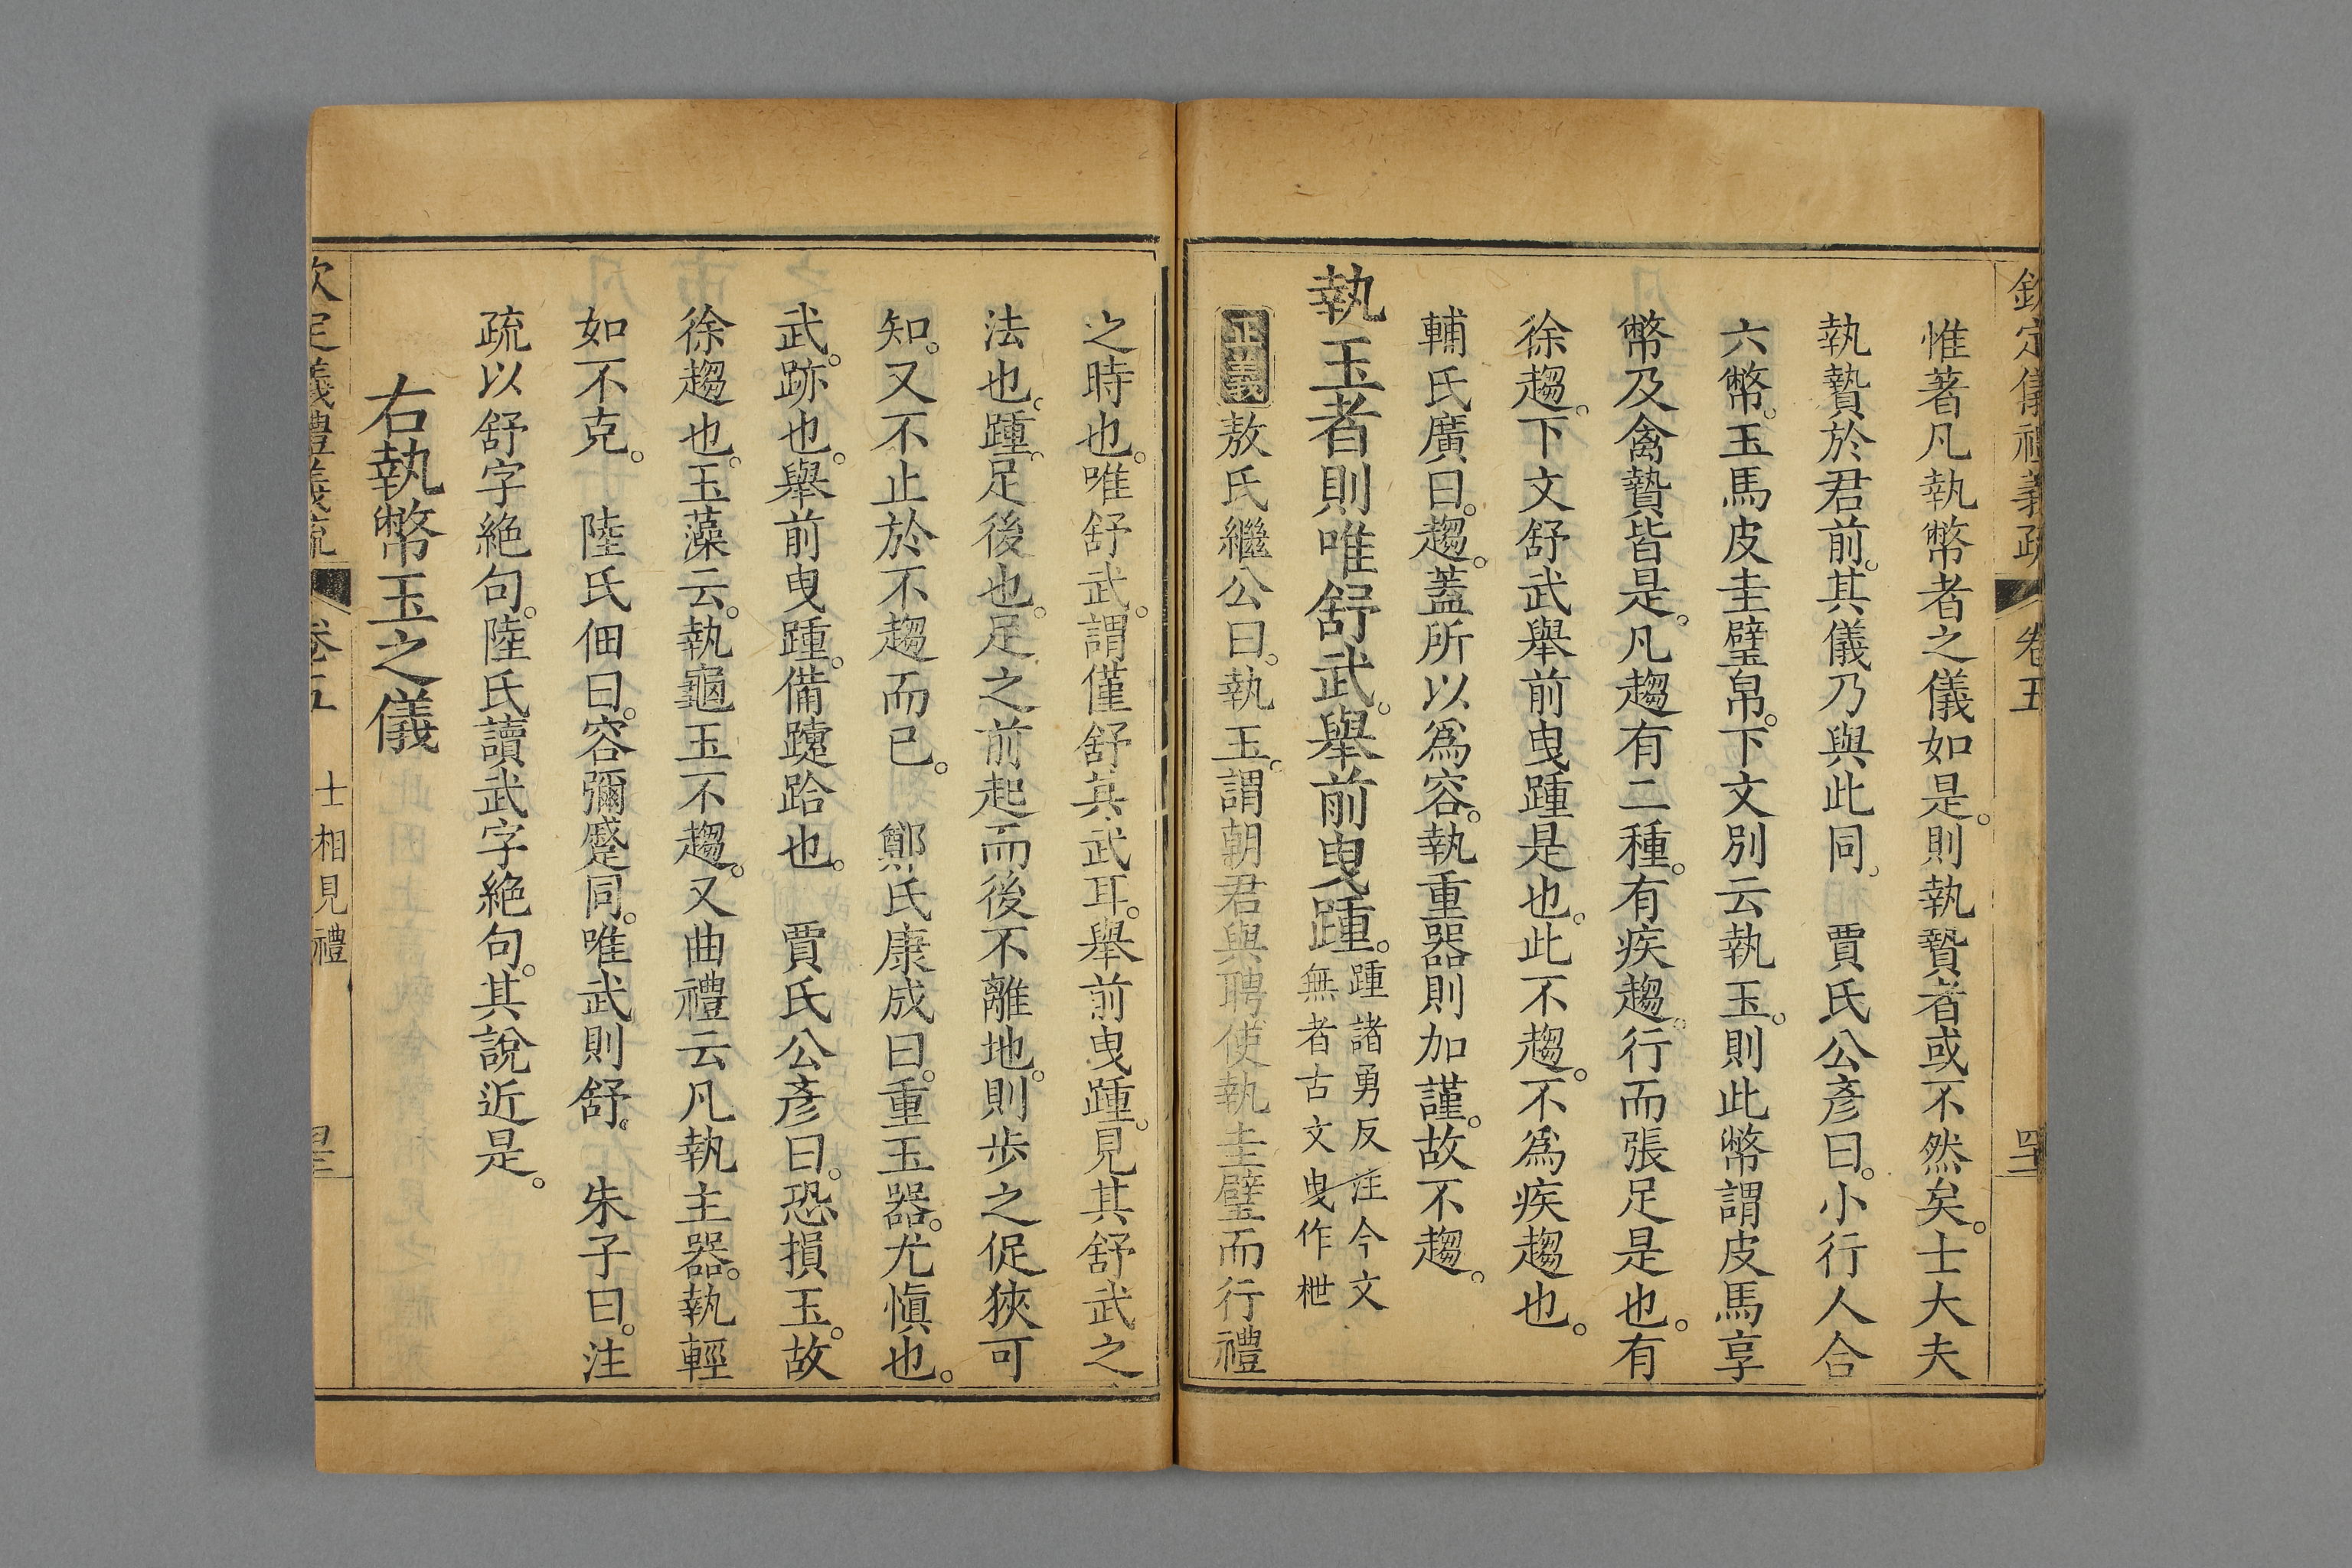 欽定儀禮義疏 卷五
惟著凡執幣者之儀如是。則執贄者或不然矣。士大夫
執贄於君前。其儀乃與此同。 賈氏公彥曰。小行人合
六幣。玉馬皮圭璧帛。下文別云執玉。則此幣謂皮馬享
幣及禽贄皆是。凡趨有二種。有疾趨。行而張足是也。有
徐趨。下文舒武舉前曳踵是也。此不趨。不為疾趨也。
輔氏廣曰。趨。蓋所以為容。執重器則加謹。故不趨。
執玉者則唯舒武。舉前曳踵。踵諸勇反 注今文
無者古文曳作枻
正義 敖氏繼公曰。執玉。謂朝君與聘使執圭璧而行禮
之時也。唯舒武。謂僅舒其武耳。舉前曳踵。見其舒武之
法也。踵。足後也。足之前起而後不離地。則步之促狹可
知。又不止於不趨而已。 鄭氏康成曰。重玉器。尤慎也。
武。跡也。舉前曳踵。備躩跲也。 賈氏公彥曰。恐損玉。故
徐趨也。玉藻云。執龜玉不趨。又曲禮云凡執主器。執輕
如不克。 陸氏佃曰。容彌蹙同。唯武則舒。 朱子曰。注
疏以舒字絕句。陸氏讀武字絕句。其說近是。
右執幣玉之儀
欽定儀禮義疏 卷五 士相見禮